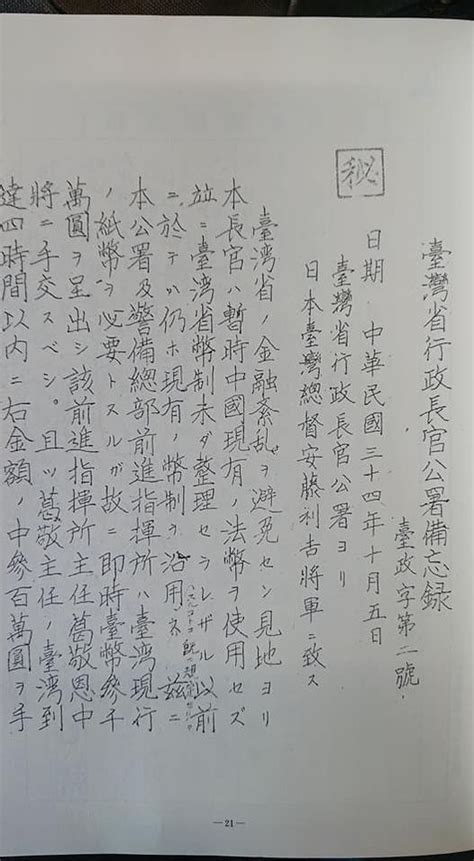 臺灣省行政長官公署備忘録
臺政字第二號
秘
日期 中華民國三十四年十月五日
臺灣省行政長官公署ヨリ
日本臺灣總督安藤利吉將軍ニ致ス
臺湾省ノ金融紊乱ヲ避免セン見地ヨリ
本長官ハ暫時中國現有ノ法幣ヲ使用セズ
並ニ臺湾省幣制未ダ整理セラレザル以前
ニ於テハ仍ホ現有ノ幣制ヲ沿用 茲ニ
本公署及警備總部前進指揮所ハ臺湾現行
ノ紙幣ヲ必要トスルガ故ニ即時臺幣參千
萬圓ヲ呈出シ該前進指揮所主任葛敬恩中
將ニ手交スベシ。且ツ葛敬主任ノ臺湾到
達四時間以内ニ右金額ノ中參百萬圓ヲ手
—21—